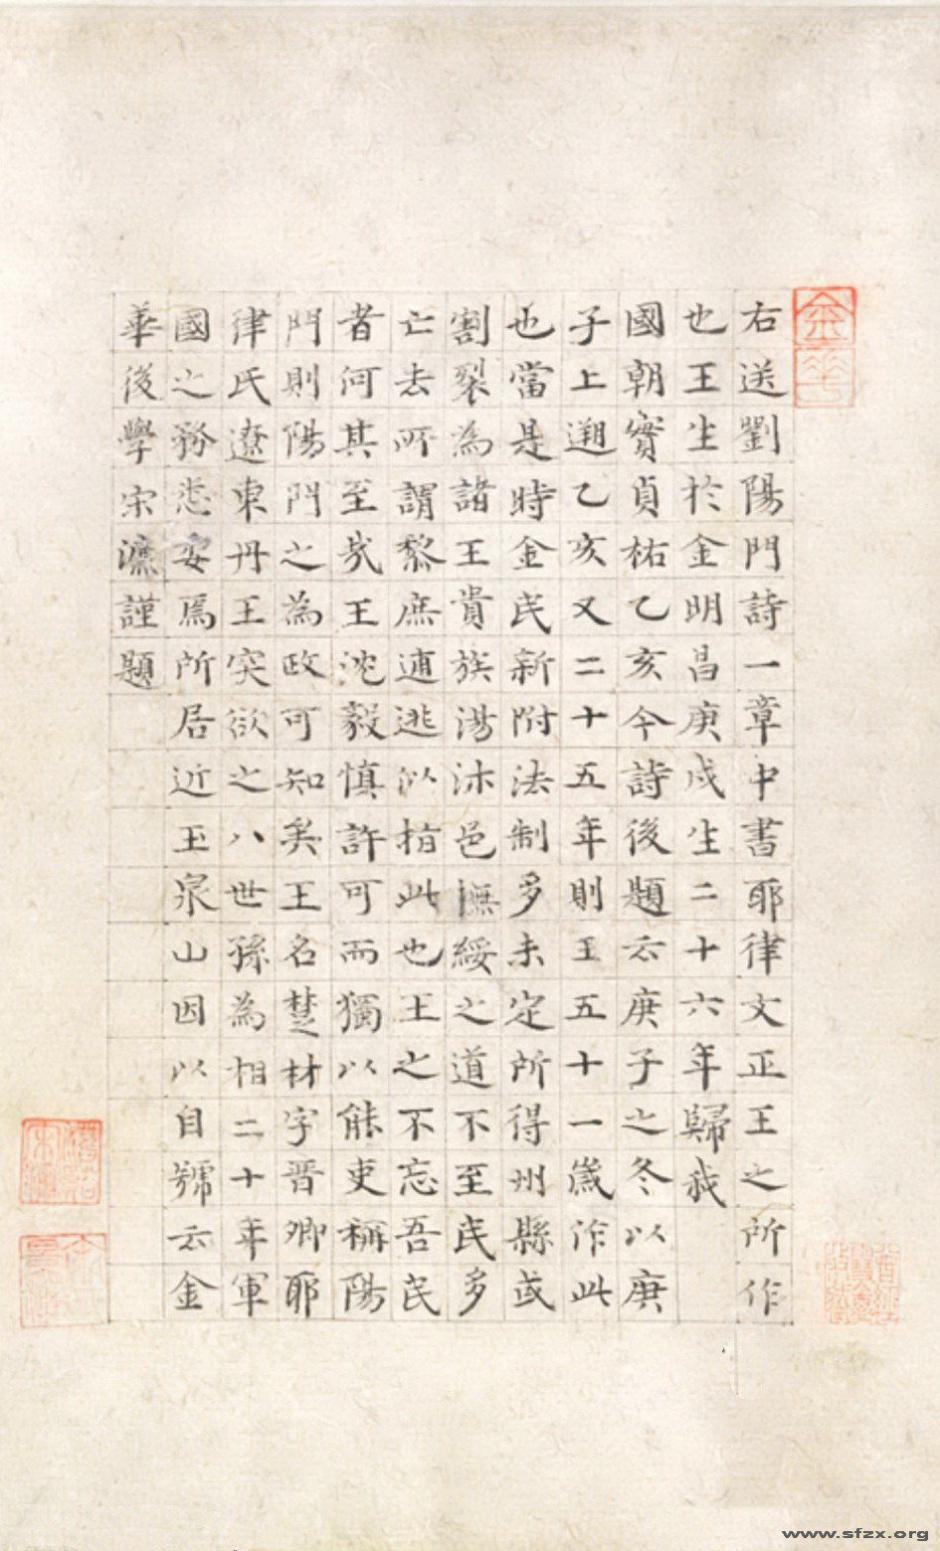 右送劉陽門詩一章中書耶律文正王之所作
也王生於金明昌庚戌生二十六年歸我
國朝實貞祐乙亥今詩後題云庚子之冬以庚
子上遡乙亥又二十五年則王五十一歲作此
也當是時金民新附法制多未定所得州縣或
割裂為諸王貴族湯沐邑撫綏之道不至民多
亡去所謂黎庶逋逃以指此也王之不忘吾民
者何其至哉王沈毅慎許可而獨以能吏稱陽
門則陽門之為政可知矣王名楚材字晉卿耶
律氏遼東丹王突欲之八世孫為相二十年軍
國之務悉安焉所居近玉泉山因以自號云金
華後學宋濂謹題
金華
www.sfzx.org